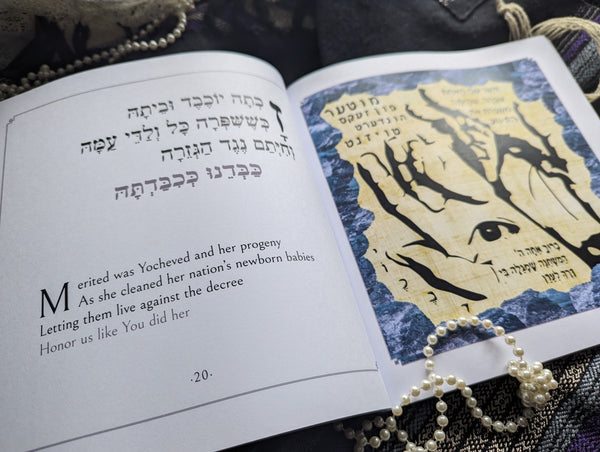 זָכְתָה יוֹכֶבֶד וּבִיתָהּ
כְּשֶׁשִּׁפְּרָה כָּל וַלְדֵי עַמָּהּ
וְחִיְּתַם נֶגֶד הַגְּזֵרָה
כַּבְּדֵנוּ כְּכִבַּדְתָּהּ
Merited was Yocheved and her progeny
As she cleaned her nation's newborn babies
Letting them live against the decree
Honor us like You did her
·20·
מוטער
פון זעקס
הונדערט
טויזנט
ברוך אתה ה'